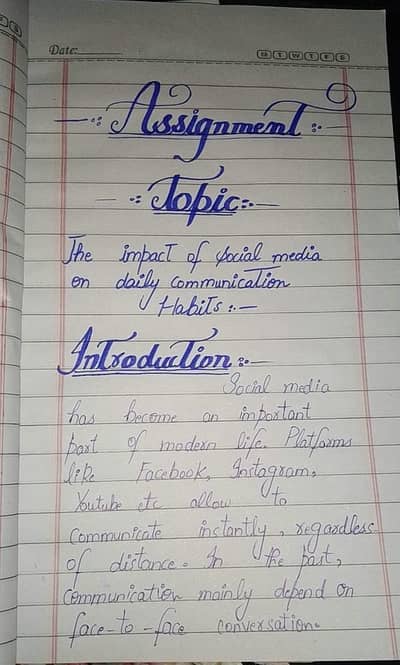 Date:
M T W T F S
—:: Assignment ::—
—:: Topic::—
The impact of social media
on daily communication
Habits::—
Introduction::—
Social media
has become an important
part of modern life. Platforms
like Facebook, Instagram,
Youtube etc allow to
communicate instantly, regardless
of distance. In the past,
communication mainly depend on
face-to-face conversation.